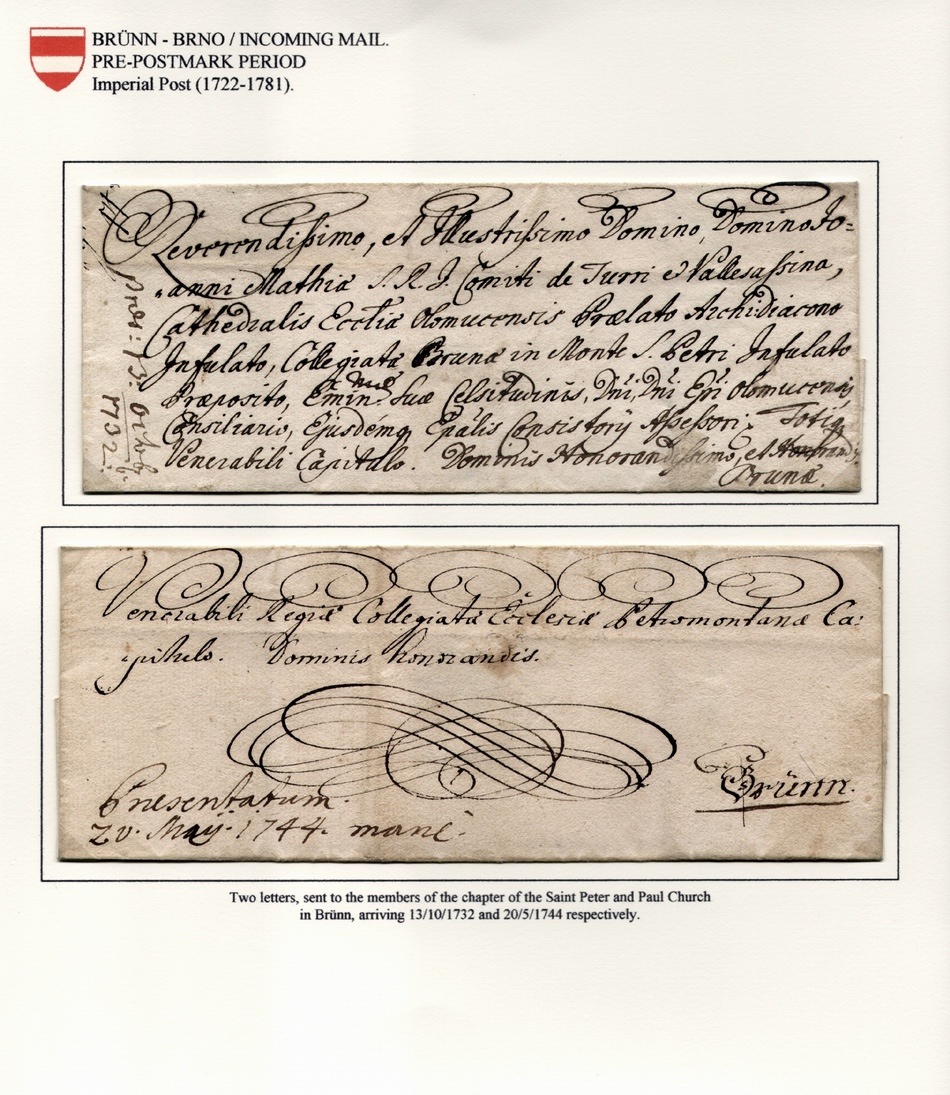 BRÜNN - BRNO / INCOMING MAIL.
PRE-POSTMARK PERIOD
Imperial Post (1722-1781).
Reverendißimo, et Illustrißimo Domino, Domino Jo=
anni Mathiæ S. R. J. Comiti de Turri et Vallesaßina,
Cathedralis Ecctiæ Olomucensis Prælato Archidiacono
Infulato, Collegiatæ Brunæ in Monte S. Petri Infulato
Præposito, Emin: Suæ Celsitudinis, Dñi, Dñi Epi Olomucensis
Consiliario, Ejusdemq Epalis Consistorÿ Aßessori;
Venerabili Capitulo. Dominis Honorandißimo, et
Brunæ.
13: Octob:
1732.
Venerabili Regiæ Collegiatæ Ecclesiæ Petromontanæ Ca:
pitulo. Dominis honorandis.
Brünn.
Præsentatum.
20. Maÿ. 1744. mane.
Two letters, sent to the members of the chapter of the Saint Peter and Paul Church
in Brünn, arriving 13/10/1732 and 20/5/1744 respectively.